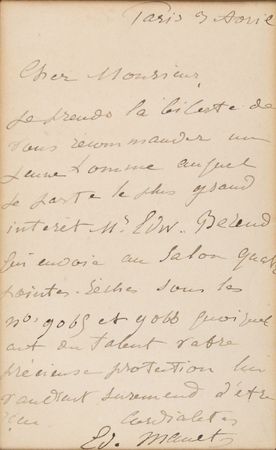 Paris 9 Avril
Cher Monsieur,
Je prends la liberté de
vous recommander un
jeune homme auquel
je porte le plus grand
intérêt Mr Edw. Berend
qui envoie au Salon quatre
pointes-sèches sous les
nos. 9065 et 9066 quoiqu'il
ait du talent votre
précieuse protection lui
vaudrait surement d'être
reçu cordialités
Ed. Manet